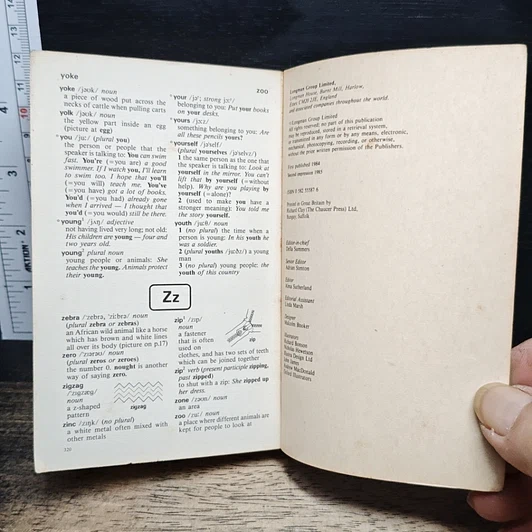 yoke
zoo
yoke /jəʊk/ noun
a piece of wood put across the
necks of cattle when pulling carts
yolk /jəʊk/ noun
the yellow part inside an egg
(picture at egg)
you /juː/ (plural you)
the person or people that the
speaker is talking to: You can swim
fast. You're (=you are) a good
swimmer. If I watch you, I'll learn
to swim too. I hope that you'll
(=you will) teach me. You've
(=you have) got a lot of books.
You'd (=you had) already gone
when I arrived — I thought that
you'd (=you would) still be there.
young¹ /jʌŋ/ adjective
not having lived very long; not old:
His children are young — four and
two years old.
young² plural noun
young people or animals: She
teaches the young. Animals protect
their young.
your /jəʳ; strong jɔːʳ/
belonging to you: Put your books
on your desks.
yours /jɔːz/
something belonging to you: Are
all these pencils yours?
yourself /jəˈself/
(plural yourselves /jəˈselvz/)
1 the same person as the one that
the speaker is talking to: Look at
yourself in the mirror. You can't
lift that by yourself (=without
help). Why are you playing by
yourself (=alone)?
2 (used to make you have a
stronger meaning): You told me
the story yourself.
youth /juːθ/ noun
1 (no plural) the time when a
person is young: In his youth he
was a soldier.
2 (plural youths /juːðz/) a young
man
3 (no plural) young people: the
youth of this country
Zz
zebra /ˈzebrə, ˈziːbrə/ noun
(plural zebra or zebras)
an African wild animal like a horse
which has brown and white lines
all over its body (picture on p.17)
zero /ˈzɪərəʊ/ noun
(plural zeros or zeroes)
the number 0. nought is another
way of saying zero.
zigzag
/ˈzɪgzæg/
noun
a z-shaped
pattern
zigzag
zinc /zɪŋk/ (no plural)
a white metal often mixed with
other metals
zip¹ /zɪp/
noun
a fastener
that is often
used on
clothes, and has two sets of teeth
which can be joined together
zip² verb (present participle zipping,
past zipped)
to shut with a zip: She zipped up
her dress.
zone /zəʊn/ noun
an area
zoo /zuː/ noun
a place where different animals are
kept for people to look at
Longman Group Limited,
Longman House, Burnt Mill, Harlow,
Essex CM20 2JE, England
and associated companies throughout the world.
© Longman Group Limited
All rights reserved; no part of this publication
may be reproduced, stored in a retrieval system,
or transmitted in any form or by any means, electronic,
mechanical, photocopying, recording, or otherwise,
without the prior written permission of the Publishers.
First published 1984
impression 1987
ISBN 0 582
Printed in Great Britain by
Richard Clay (The Chaucer Press) Ltd,
Bungay, Suffolk
Editor-in-chief
Della Summers
Senior Editor
Adrian Stenton
Editor
Sutherland
Editorial Assistant
Marsh
Designer
Malcolm Booker
Illustrators
Richard Bonson
Howerson
Design Ltd
James
Andrew MacDonald
Oxford Illustrators